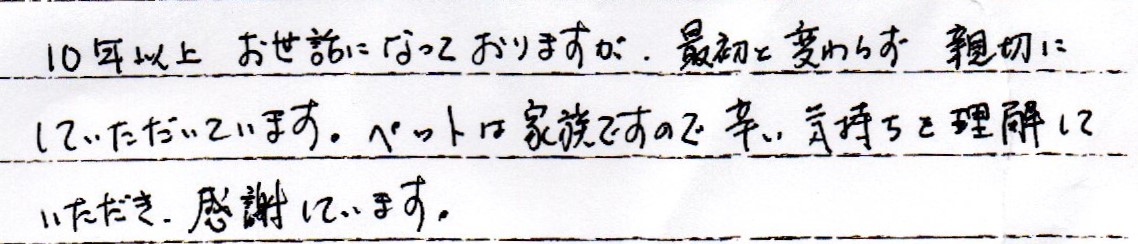 10年以上 お世話になっておりますが、最初と変わらず 親切に
していただいています。ペットは家族ですので 辛い気持ちを理解して
いただき、感謝しています。